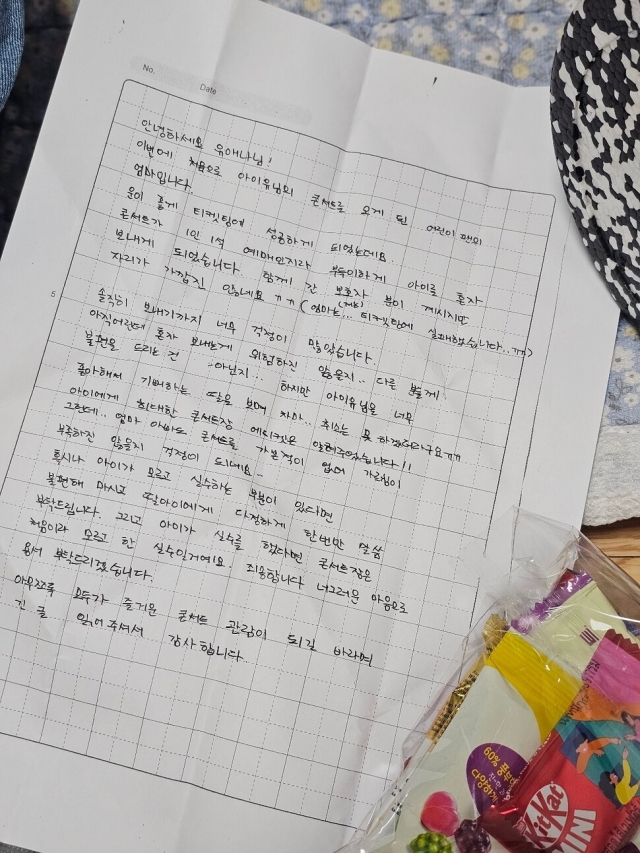 No.
Date
안녕하세요 유애나님!
이번에 처음으로 아이유님의 콘서트를 오게 된 어린이 팬의
엄마입니다.
운이 좋게 티켓팅에 성공하게 되었는데요.
콘서트가 1인 1석 예매인지라 부득이하게 아이를 혼자
보내게 되었습니다. 함께 간 보호자 분이 계시지만
자리가 가깝진 않네요 ㅠㅠ (엄마는(저는)... 티켓팅에 실패했습니다..ㅠㅠ)
5
솔직히 보내기까지 너무 걱정이 많았습니다.
아직어린데 혼자 보내는게 위험하진 않을지.. 다른 분들께
불편을 드리는 건 아닌지.. 하지만 아이유님을 너무
좋아해서 기뻐하는 딸을 보며 차마.. 취소는 못 하겠더라구요ㅠㅠ
아이에게 최대한 콘서트장 에티켓은 알려주었습니다!!
그런데.. 엄마 아빠도 콘서트를 가본적이 없어 가르침이
부족하진 않을지 걱정이 되네요~
혹시나 아이가 모르고 실수하는 부분이 있다면
불편해 마시고 딸아이에게 다정하게 한번만 말씀
부탁드립니다. 그리고 아이가 실수를 했다면 콘서트장은
처음이라 모르고 한 실수일거예요. 죄송합니다 너그러운 마음으로
용서 부탁드리겠습니다.
아무쪼록 모두가 즐거운 콘서트 관람이 되길 바라며
긴 글 읽어주셔서 감사합니다.
60%
KitKat
MINI